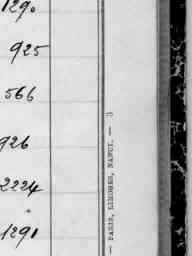 1290
925
566
926
2224
1291
— PARIS, LIMOGES, NANCY. — 3